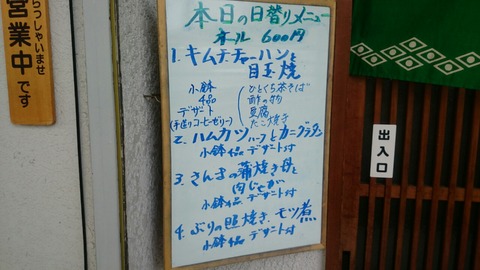 らっしゃいませ
営業中です
本日の日替りメニュー
オール 600円
1. キムチチャーハンと
目玉焼
小鉢
4品
デザート
(手造りコーヒーゼリー)
ひとくち茶そば
酢の物
豆腐
たこ焼き
2. ハムカツハーフとカニグラタン
小鉢4品 デザート付
3. さんまの蒲焼き丼と
肉じゃが
小鉢4品 デザート付
4. ぶりの照焼き、モツ煮
小鉢4品 デザート付
出入口